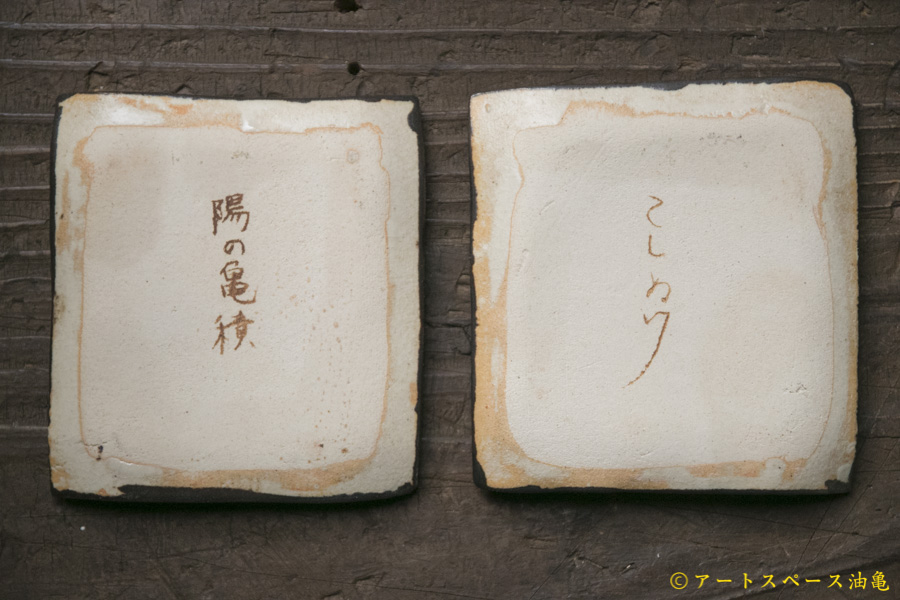 陽の亀積
こしぬけ
©アートスペース油亀